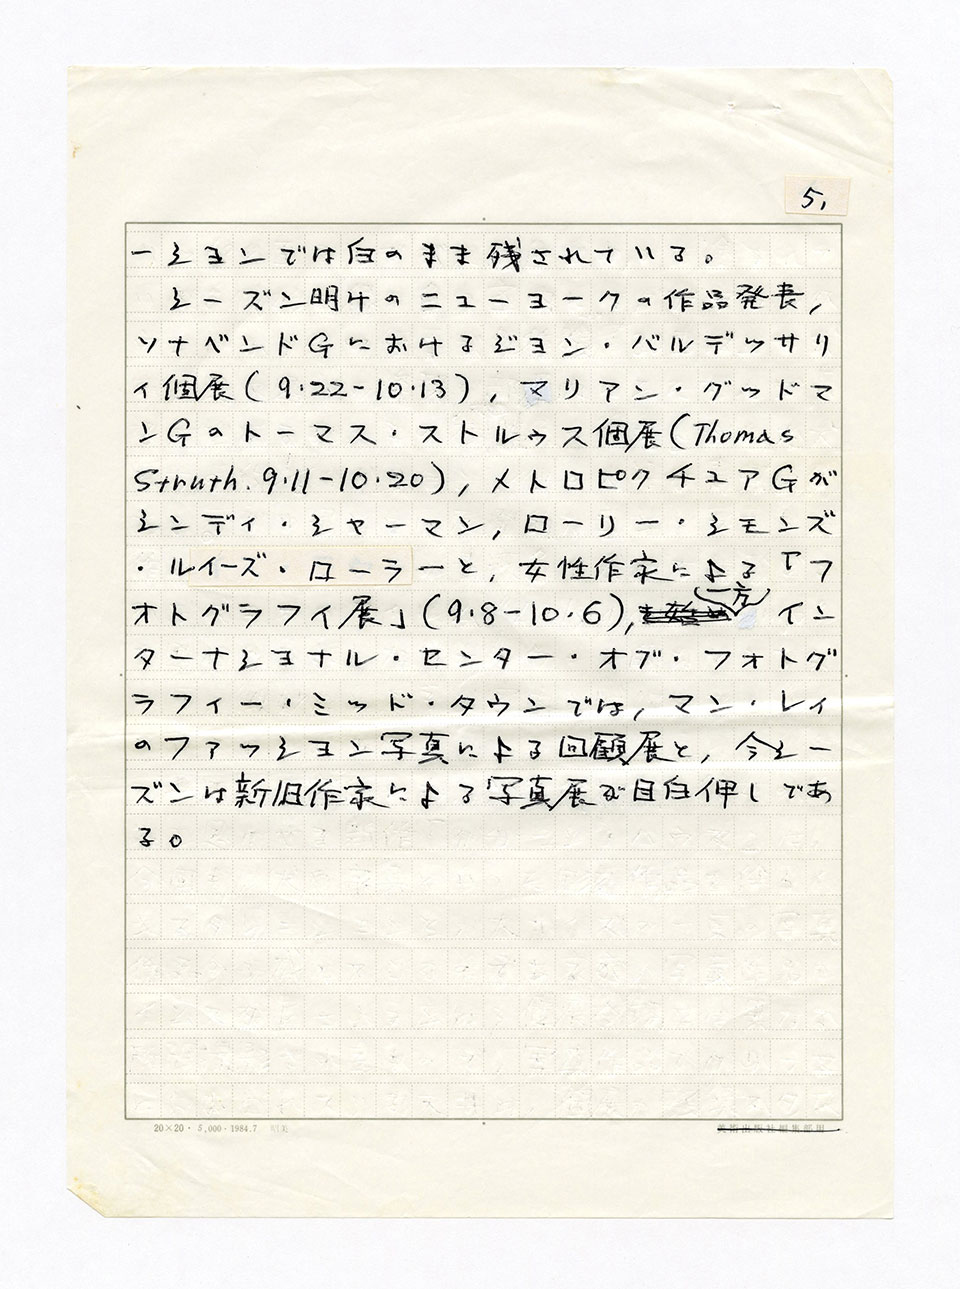 5,
ーションでは白のまま残されている。
シーズン明けのニューヨークの作品発表,
ソナベンドGにおけるジョン・バルデッサリ
ィ個展(9・22-10・13),マリアン・グッドマ
ンGのトーマス・ストルゥス個展(Thomas
Struth. 9・11-10・20),メトロピクチュアGが
シンディ・シャーマン,ローリー・シモンズ
・ルイーズ・ローラーと,女性作家による『フ
一方
ォトグラフィ展」(9・8-10・6), イン
ターナショナル・センター・オブ・フォトグ
ラフィー・ミッド・タウンでは,マン・レイ
のファッション写真による回顧展と,今シー
ズンは新旧作家による写真展が目白押しであ
る。
20×20・5,000・1984.7 昭美
美術出版社編集部用